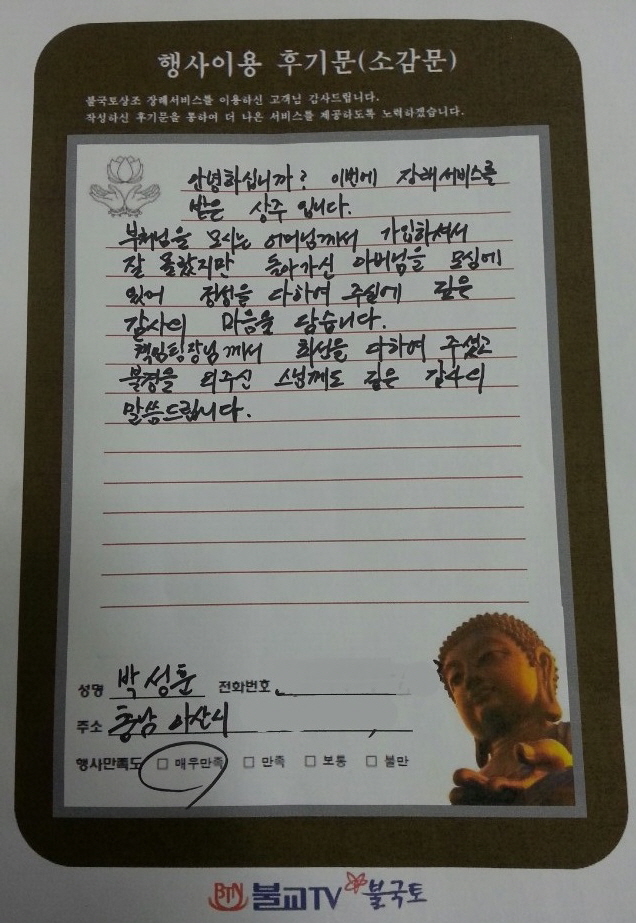 행사이용 후기문(소감문)
불국토상조 장례서비스를 이용하신 고객님 감사드립니다.
작성하신 후기문을 통하여 더 나은 서비스를 제공하도록 노력하겠습니다.
안녕하십니까? 이번에 장례서비스를
받은 상주 입니다.
부처님을 모시는 어머님께서 가입하셔서
잘 몰랐지만 돌아가신 아버님을 모심에
있어 정성을 다하여 주심에 깊은
감사의 마음을 담습니다.
책임팀장님께서 최선을 다하여 주셨고
불경을 외주신 스님께도 깊은 감사의
말씀드립니다.
성명 박성훈 전화번호
주소 충남 아산시
행사만족도 □ 매우만족 □ 만족 □ 보통 □ 불만
BTN 불교TV 불국토